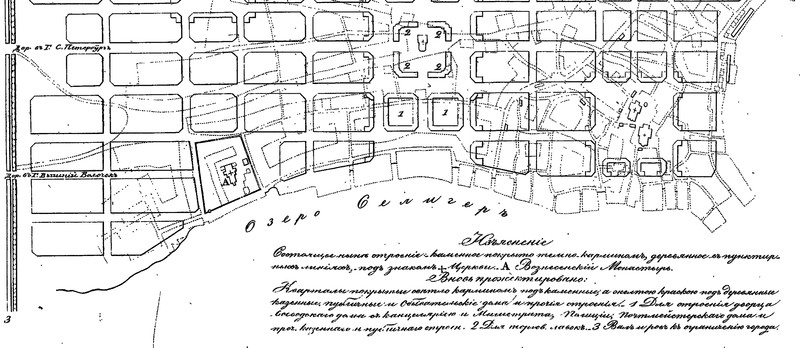 Дор. въ Г. С. Петербургъ
2 2
2 2
1 1
Дор. въ Г. Вышній Волочекъ
А
Озеро Селигеръ
Изъясненіе
Состоящее нынѣ строеніе каменное покрыто темно карминомъ, деревянное въ пунктир-
ныхъ линіяхъ, подъ знакомъ + Церкви. А Вознесенскій Монастырь.
Вновь прожектировано:
Кварталы покрытые свѣтло карминомъ подъ каменныя, а желтою краскою подъ деревянныя
казенные, публичные и обывательскіе дома и протчія строенія. 1 Для строенія дворца
воеводскаго дома съ канцеляріею и Магистрата, Полиціи, Почтмейстерскаго дома и
проч. казеннаго и публичнаго строен. 2 Для торгов. лавокъ. 3 Валъ и ровъ къ ограниченію города.
3